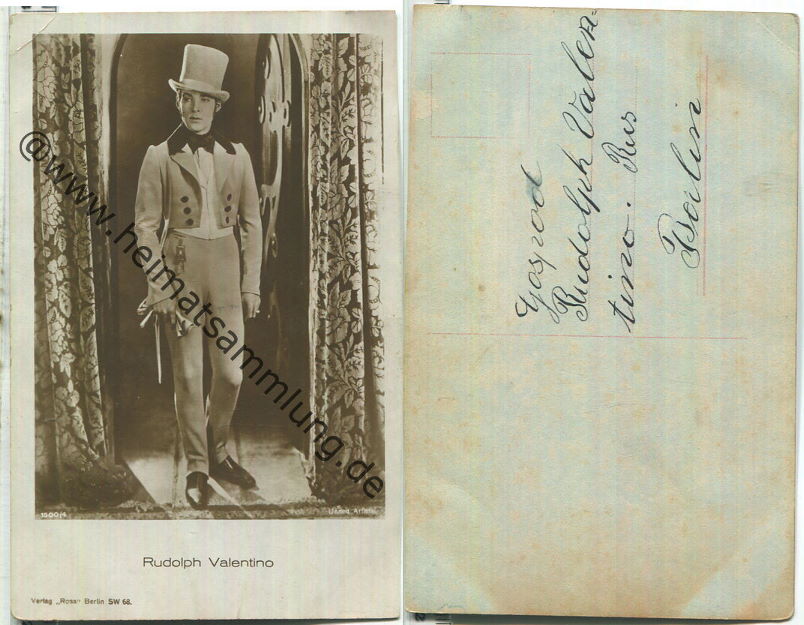 1500/4
United Artists
Rudolph Valentino
Verlag „Ross“ Berlin SW 68.
@www.heimatsammlung.de
Gospod
Rudolph Valen-
tino. Rus
Berlin